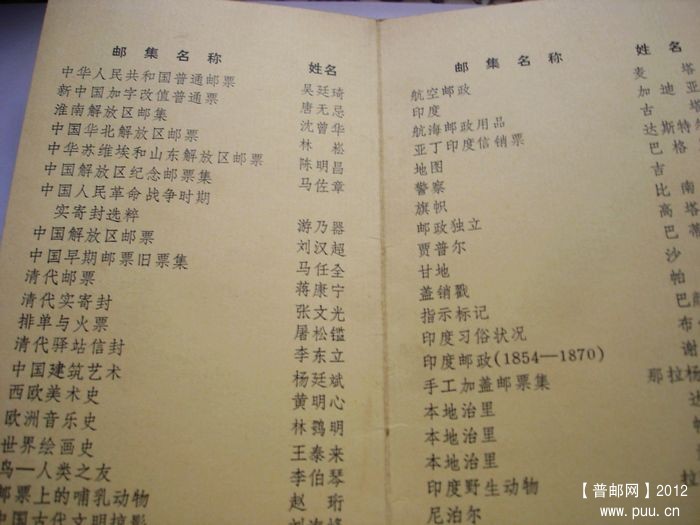 邮集名称 姓名
中华人民共和国普通邮票 吴廷琦
新中国加字改值普通票 唐无忌
淮南解放区邮集 沈曾华
中国华北解放区邮票 林崧
中华苏维埃和山东解放区邮票 陈明昌
中国解放区纪念邮票集 马佐章
中国人民革命战争时期
实寄封选粹 游乃器
中国解放区邮票 刘汉超
中国早期邮票旧票集 马任全
清代邮票 蒋康宁
清代实寄封 张文光
排单与火票 屠松
清代驿站信封 李东立
中国建筑艺术 杨廷斌
西欧美术史 黄明心
欧洲音乐史 林鹗明
世界绘画史 王泰来
鸟—人类之友 李伯琴
邮票上的哺乳动物 赵珩
中国古代文明掠影
邮集名称 姓名
航空邮政 麦塔
印度 加地亚
航海邮政用品 古塔
亚丁印度信销票 达斯特
地图 巴格
警察 吉
旗帜 比南
邮政独立 高塔
贾普尔 巴蒂
甘地 沙
盖销戳 帕
指示标记 巴
印度习俗状况 布
印度邮政(1854—1870) 谢
手工加盖邮票集 那拉杨
本地治里 达
本地治里
本地治里
印度野生动物
尼泊尔
【普邮网】2012
www.puu.cn